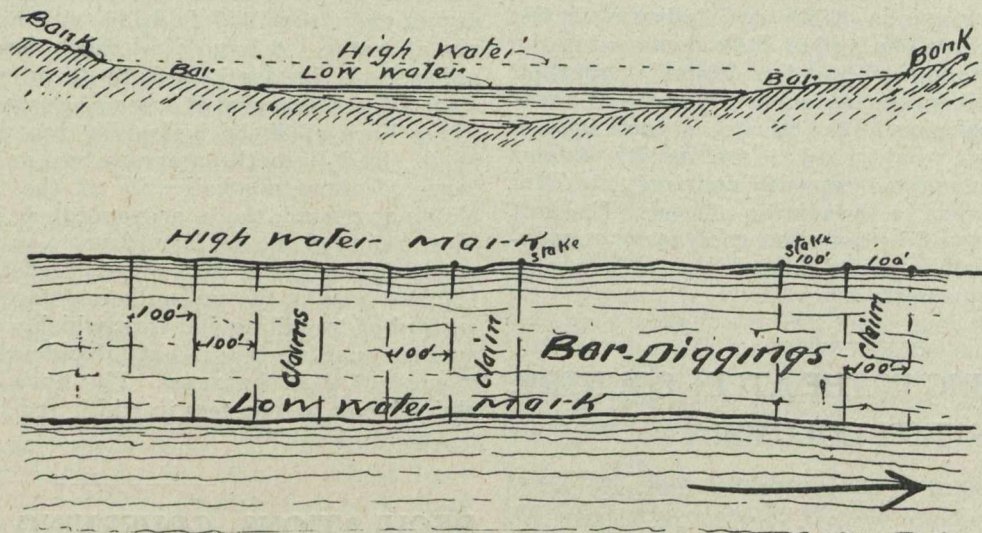 Bank
High Water
Bank
Bar
Low water
Bar
High Water Mark
stake
stake
100'
100'
100'
100'
Claims
100'
Claim
Bar-Diggings
Claim
100'
Low Water Mark